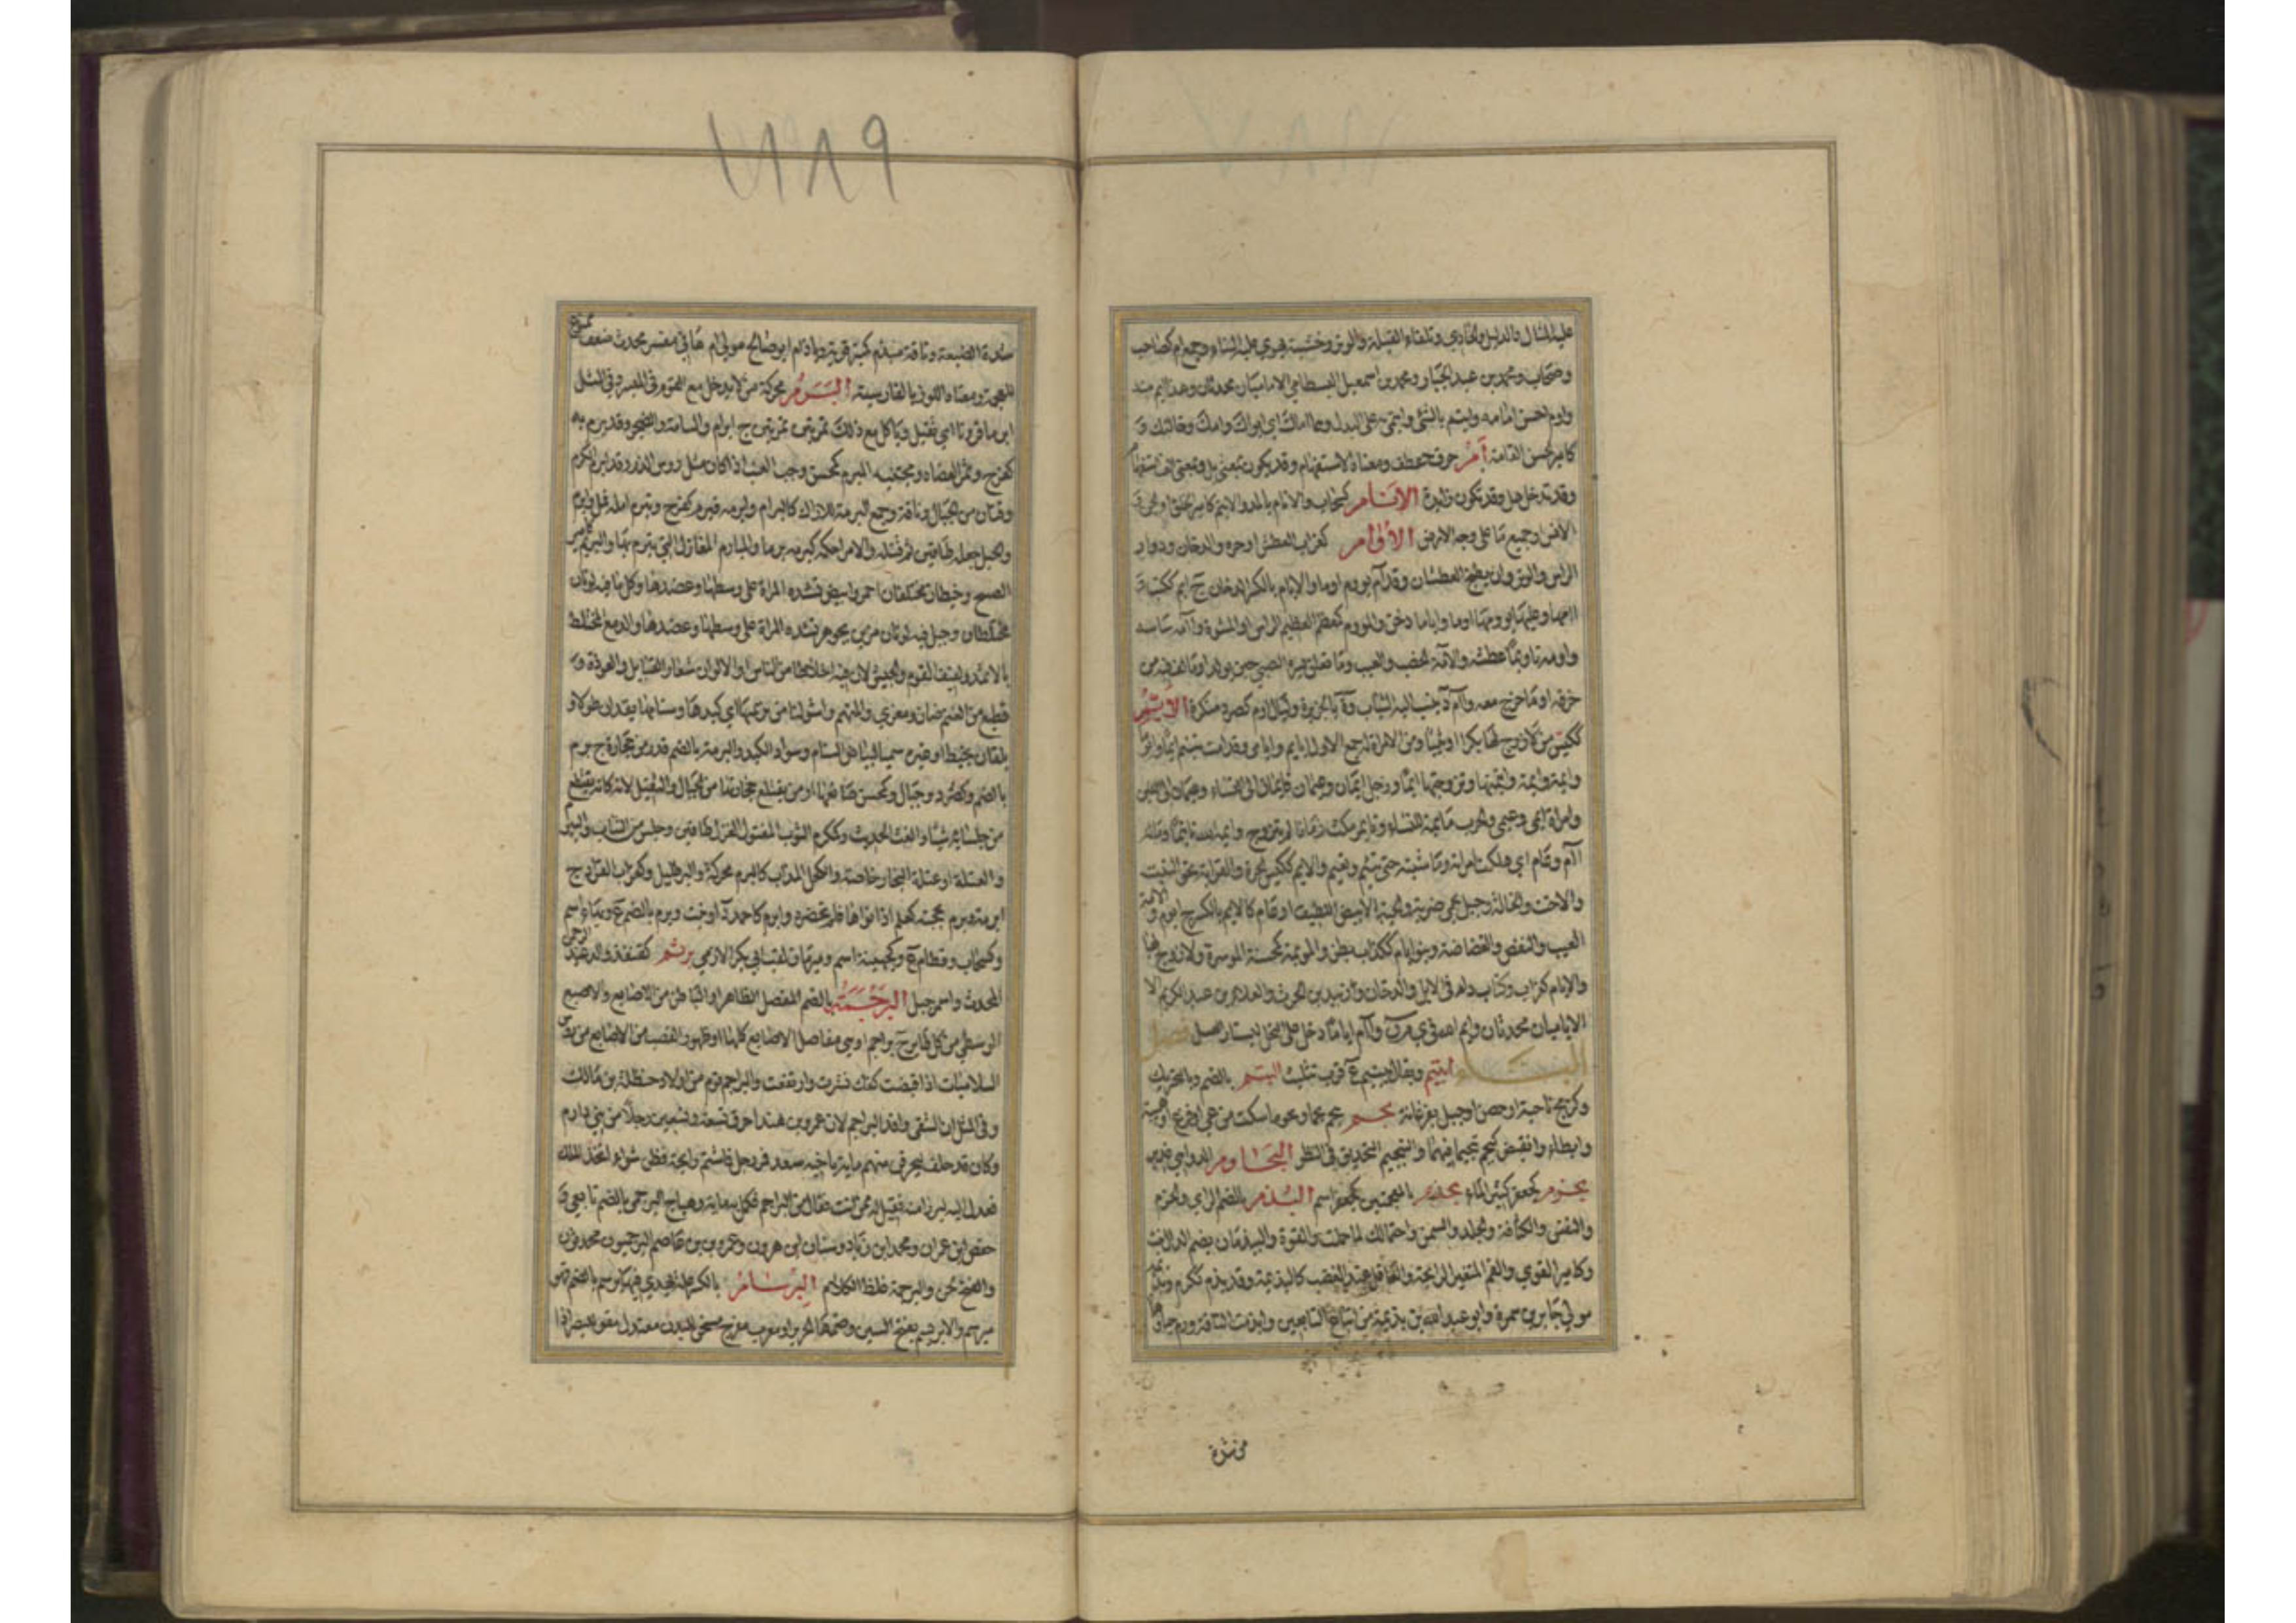 عليه المثال والدليل والحادي وتلقاء القبلة والوتر وخشبة يسوي عليها البناء وجمع ام كصاحب
وصحاب ومحمد بن عبد الجبار ومحمد بن اسمعيل البسطامي الاماميان محدثان وهذا ايم منه
واوم احسن امامه وايتم بالشئ وايتمى به على البدل وهما اماك اي ابواك وامك وخالتك و
كامير الحسن القامة أم حرف عطف ومعناه الاستفهام وقد يكون بمعنى بل وبمعنى الف استفهام
وقد تدخل هل وقد تكون زايدة الانام كسحاب والانام بالمد والانيم كامير الخلق او الجن و
الانس او جميع ما على وجه الارض الأوام كغراب العطش او حره والدخان ودوار
الراس والوتر وان يضج العطشان وقد آم يووم اوما والايام بالكسر الدخان ج ايم ككتب و
آمها وعليها يوومها اوما واياما دخن والمووم كمعظم العظيم الراس او المشوه وآمه ساسه
واومه تاويما عطشه والآمة الخصب والعيب وما تعلق بسرة الصبي حين يولد او ما لف فيه من
خرقة او ما خرج معه وآم د جنب اليه الثياب وة بالجزيرة وليال اوم كصرد منكرة الأيّم
ككيس من لا زوج لها بكرا او ثيبا ومن لا امراة له جمع الاول ايايم وايامى وقد امت تئيم ايما وايوما
وايمة وايمة وايمتها وتزوجتها ايما ورجل ايمان وعيمان فايمان الى النساء وعيمان الى اللبن
وامراة ايمى وعيمى والحرب مايمة للنساء وتايم مكث زمانا لم يتزوج وايمه الله تاييما وماله
آم وعام اي هلكت امراته وماشيته حتى يئيم ويعيم والايم ككيس الحرة والقرابة نحو البنت
والاخت والخالة وجبل بحمى ضرية والحية الابيض اللطيف او عام كالايم بالكسر ج ايوم والآمة
العيب والنقص والغضاضة وبنو ايام ككذاب بطن والمويمة كمحسنة الموسرة ولا زوج لها
والايام كغراب وكتاب داء في الابل والدخان وايد بن الحرث والعلاء بن عبد الكريم الا
الاياميان محدثان وايم الله في ي م ن وآم اياما دخل على النحل ليشتار العسل فصل
الباء ابيتم ويقال ابنيم ع قرب تثليث البتم بالضم وبالتحريك
وكزبج ناحية او حصن او جبل بفرغانة بجم يجم بجما وبجوما سكت من عي او فزع او هيبة
وابطا وانقبض كبجم تبجيما فيهما والتبجيم التحديق في النظر البجارم الدواهي
بحرم كجعفر كثير الماء بخذم بالمعجمتين كجعفر اسم البذم بالضم الراي والحزم
والنفس والكثافة والجلد والسمن واحتمالك لما حملت والقوة والبيذمان بضم الدال نبت
وكامير القوي والفم المتغير الرايحة والعاقل عند الغضب كالبذيمة وقد بذم ككرم وبذيمة
مولى جابر بن سمرة وابو عبد الله بن بذيمة من اتباع التابعين وابذمت الناقة ورم حياوها
من شدة
شدة الضبعة وناقة مبذم كمنبر قوية وباذام ابو صالح مولى ام هاني مفسر محدث ضعيف ممنوع
للعجمة ومعناه اللوز بالفارسية البَرَمُ محركة من لا يدخل مع القوم في الميسر وفي المثل
ابرما قرونا اي ثقيل وياكل مع ذلك تمرتين تمرتين ج ابرام والسامة والضجر وقد برم به
كفرح وثمر العضاه ومجتنيه المبرم كمحسن وحب العنب اذا كان مثل روس الذر وقد ابرم الكرم
وقنان من الجبال وناقة وجمع البرمة للاراك كالبرام وابرمه فبرم كفرح وتبرم امله فمل وابرم
والحبل جعله طاقين ثم فتله والامر احكمه كبرمه برما والمبارم المغازل التي يبرم بها والبريم كامير
الصبح وخيطان مختلفان احمر وابيض تشده المراة على وسطها وعضدها وكل ما فيه لونان
مختلطان وحبل فيه لونان مزين بجوهر تشده المراة على وسطها وعضدها والدمع المختلط
بالاثمد ولفيف القوم والجيش لان فيه اخلاطا من الناس او الالوان شعار القبايل والعوذة و
قطيع من الغنم ضان ومعزى والمتهم واشو لنا من بريمها اي كبدها وسنامها يقدان طولا و
يلفان بخيط او غيره سميا لبياض السنام وسواد الكبد والبرمة بالضم قدر من حجارة ج برم
بالضم وكصرد وجبال وكمحسن صانعها او من يقتلع حجارتها من الجبال والثقيل لانه كانه يقتطع
من جلسايه شيا والغث الحديث وكمكرم الثوب المفتول الغزل طاقين وجلس من الثياب والبيرم
والعتلة او عتلة النجار خاصة والكحل المذاب كالبرم محركة والبرطيل وكغراب القراد ج
ابرمة وبرم بحجته كعلم اذا نواها فلم تحضره وابرم كاحمد د او نبت وبرم بالضم ع وبهاء اسم
وكسحاب وقطام ع وكجهينة اسم ومبرمان لقب ابي بكر الازمي برثم كقنفذ والد عبد الرحمن
المحدث واسم جبل البُرْجُمَةُ بالضم المفصل الظاهر او الباطن من الاصابع والاصبع
الوسطى من كل طاير ج براجم او هي مفاصل الاصابع كلها او ظهور القصب من الاصابع من روس
السلاميات اذا قبضت كفك نشزت وارتفعت والبراجم قوم من اولاد حنظلة بن مالك
وفي المثل ان الشقي وافد البراجم لان عمرو بن هند احرق تسعة وتسعين رجلا من بني دارم
وكان قد حلف ليحرقن منهم ماية باخيه سعد فمر رجل فاشتم رايحة فظن شواء اتخذ الملك
فعدل اليه ليرزا منه فقيل له ممن انت فقال من البراجم فكمل به ماية وهياج البرجمي بالضم تابعي و
حفص بن عمران ومحمد بن زياد وسنان بن هرون وعمرو بن عاصم البرجميون محدثون
والفتح لحن والبرجمة غلظ الكلام البِرْسَامُ بالكسر علة يهذى فيها برسم بالضم فهو
مبرسم والابريسم بفتح السين وضمها الحرير او معرب مفرح مسخن للبدن معتدل مقو للبصر اذا